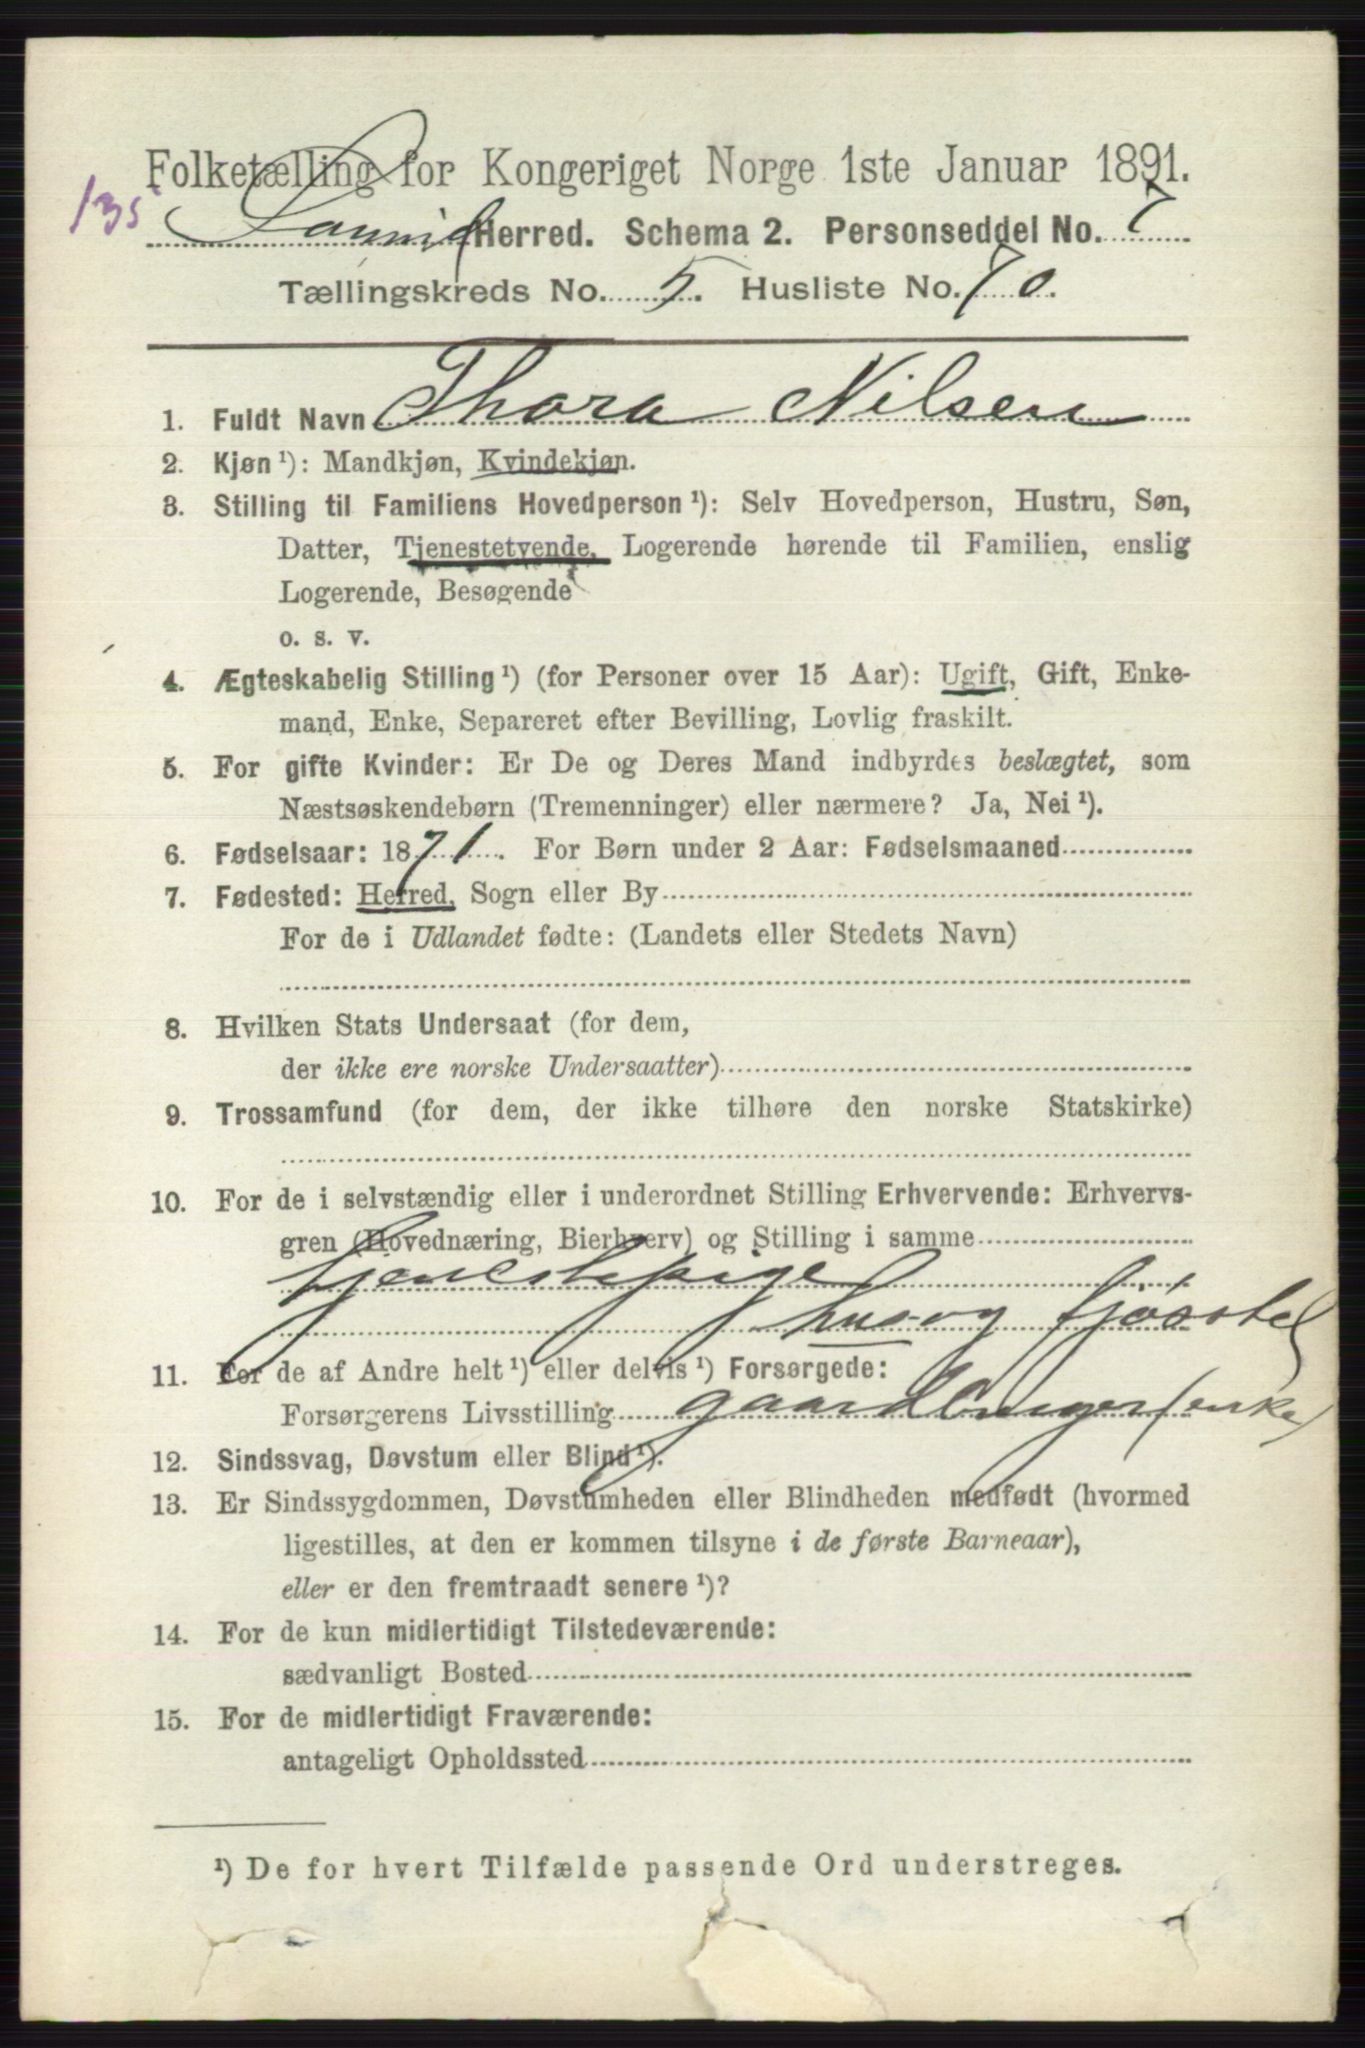 Folketælling for Kongeriget Norge 1ste Januar 1891.
135
Sannid Herred. Schema 2. Personseddel No. 7
Tællingskreds No. 5. Husliste No. 70.
1. Fuldt Navn Thora Nilsen
2. Kjøn ¹): Mandkjøn, Kvindekjøn.
3. Stilling til Familiens Hovedperson ¹): Selv Hovedperson, Hustru, Søn,
Datter, Tjenestetyende, Logerende hørende til Familien, enslig
Logerende, Besøgende
o. s. v.
4. Ægteskabelig Stilling ¹) (for Personer over 15 Aar): Ugift, Gift, Enke-
mand, Enke, Separeret efter Bevilling, Lovlig fraskilt.
5. For gifte Kvinder: Er De og Deres Mand indbyrdes beslægtet, som
Næstsøskendebørn (Tremenninger) eller nærmere? Ja, Nei ¹).
6. Fødselsaar: 1871. For Børn under 2 Aar: Fødselsmaaned
7. Fødested: Herred, Sogn eller By
For de i Udlandet fødte: (Landets eller Stedets Navn)
8. Hvilken Stats Undersaat (for dem,
der ikke ere norske Undersaatter)
9. Trossamfund (for dem, der ikke tilhøre den norske Statskirke)
10. For de i selvstændig eller i underordnet Stilling Erhvervende: Erhvervs-
gren (Hovednæring, Bierhverv) og Stilling i samme
tjenestepige
hus og fjøsstel
11. For de af Andre helt ¹) eller delvis ¹) Forsørgede:
Forsørgerens Livsstilling gaardbruger (enke)
12. Sindssvag, Døvstum eller Blind ¹).
13. Er Sindssygdommen, Døvstumheden eller Blindheden medfødt (hvormed
ligestilles, at den er kommen tilsyne i de første Barneaar),
eller er den fremtraadt senere ¹)?
14. For de kun midlertidigt Tilstedeværende:
sædvanligt Bosted
15. For de midlertidigt Fraværende:
antageligt Opholdssted
¹) De for hvert Tilfælde passende Ord understreges.